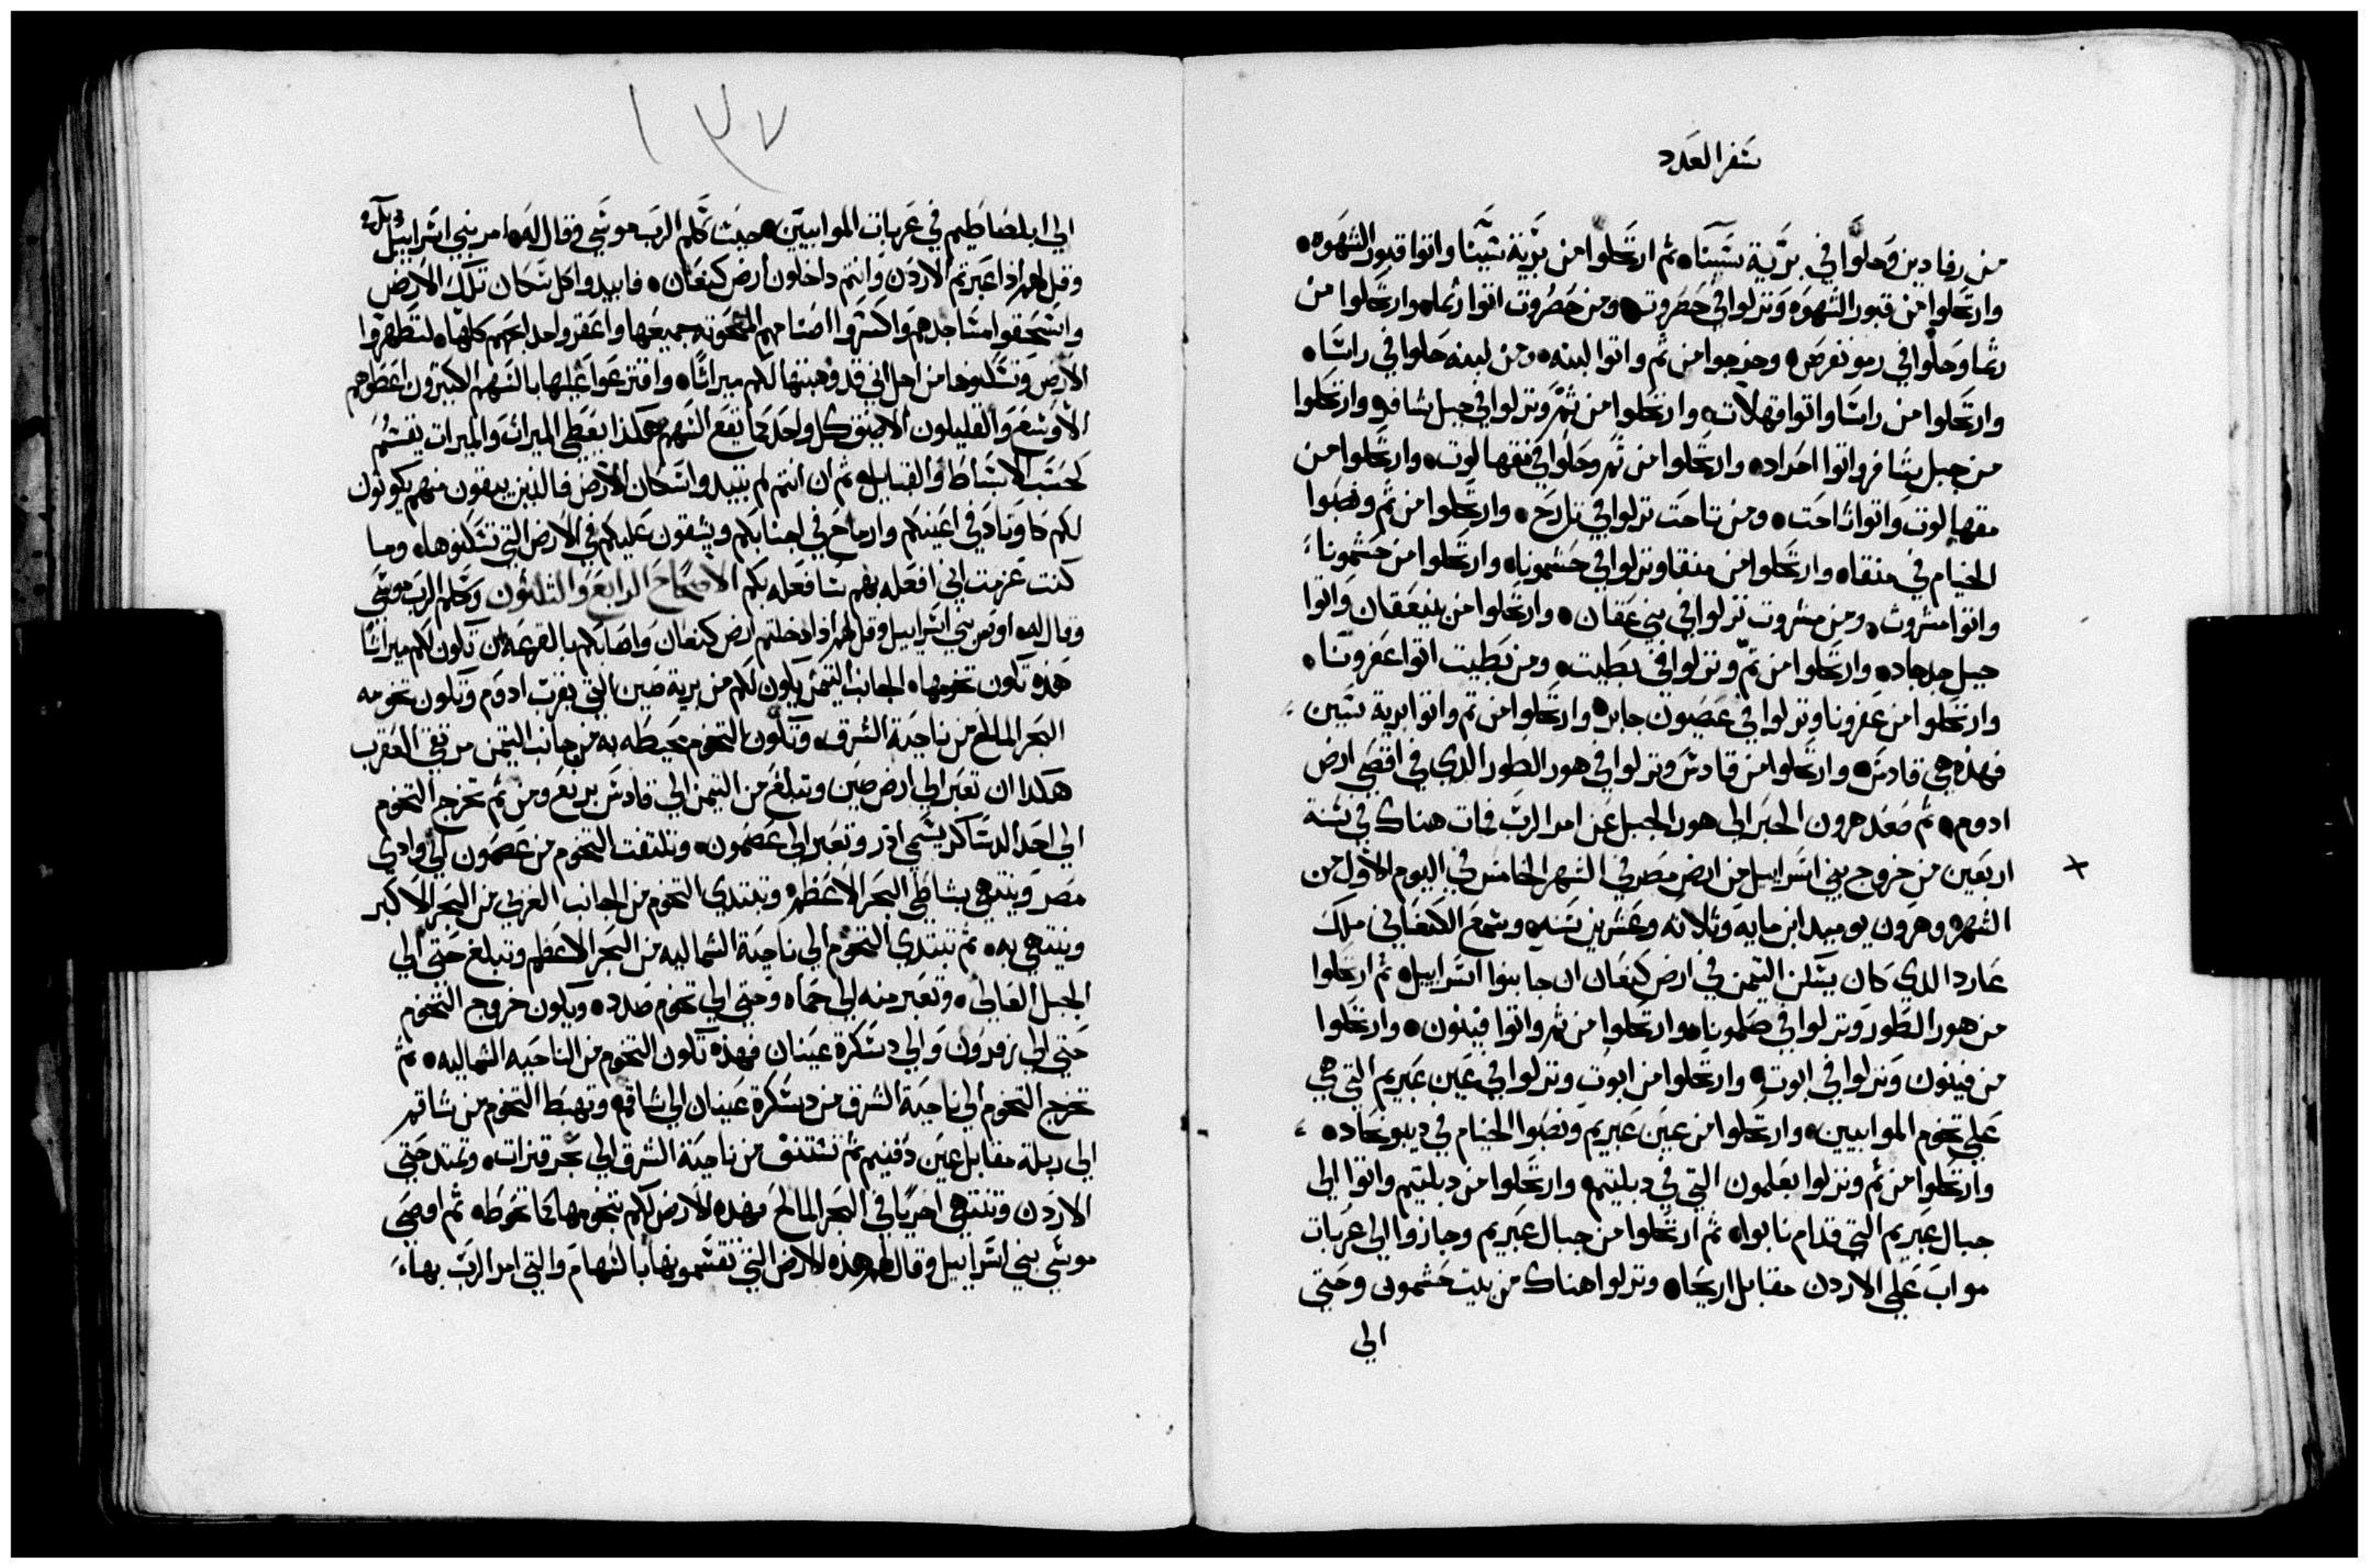 سفر العدد
من رفادين وحلوا في برية سينا ثم ارتحلوا من برية سينا واتوا قبور الشهوه
وارتحلوا من قبور الشهوه ونزلوا في حضروت ومن حضروت اتوا رثما وارتحلوا من
رثما وحلوا في رمون فرص وخرجوا من ثم واتوا لبنه ومن لبنه حلوا في راسا
وارتحلوا من راسا واتوا قهلات وارتحلوا من ثم ونزلوا في جبل شافر وارتحلوا
من جبل شافر واتوا احراده وارتحلوا من ثم وحلوا في مقهالوت وارتحلوا من
مقهالوت واتوا تاحت ومن تاحت نزلوا في تلرح وارتحلوا من ثم ونصبوا
الخيام في متقا وارتحلوا من متقا ونزلوا في حشمونا وارتحلوا من حشمونا
واتوا مشروت ومن مشروت نزلوا في بني عقان وارتحلوا من بني عقان واتوا
جبل جدجاد وارتحلوا من ثم ونزلوا في يطبت ومن يطبت اتوا عفرونا
وارتحلوا من عفرونا ونزلوا في عصيون جابر وارتحلوا من ثم واتوا برية سين
فهذه هي قادش وارتحلوا من قادش ونزلوا في هور الطور الذي في اقصي ارض
ادوم ثم صعد هرون الحبر الي هور الجبل عن امر الرب فمات هناك في سنة
اربعين من خروج بني اسراييل من ارض مصر في الشهر الخامس في اليوم الاول من
الشهر وهرون يوميد ابن مايه وثلاثه وعشرين سنه وسمع الكنعاني ملك
عارد الدي كان يسكن التيمن في ارض كنعان ان جا بنوا اسراييل ثم ارتحلوا
من هور الطور ونزلوا في صلمونا وارتحلوا من ثم واتوا فينون وارتحلوا
من فينون ونزلوا في ابوت وارتحلوا من ابوت ونزلوا في عين عبريم التي هي
علي تخوم الموابيين وارتحلوا من عين عبريم ونصبوا الخيام في ديبون جاد
وارتحلوا من ثم ونزلوا بعلمون التي في دبلتيم وارتحلوا من دبلتيم واتوا الي
جبال عبريم التي قدام نابوا ثم ارتحلوا من جبال عبريم وجازوا الي عربات
مواب علي الاردن مقابل اريحا ونزلوا هناك من بيت حشمون وحتي
الي
١٣٧
الي ابلصاطيم في عربات الموابيين حيث كلم الرب موسي وقال له امر بني اسراييل
وقل لهم اذا عبرتم الاردن وانتم داخلون ارض كنعان فابيدوا كل سكان تلك الارض
واسحقوا مساجدهم واكسروا اصنامهم المنحوته جميعها واعقروا مدابحهم كلها لتطهروا
الارض وتسكنوها من اجل اني قد وهبتها لكم ميراثا واقترعوا عليها بالسهم الكبيرون اعطوهم
الاوسع والقليلون الاضيق كل واحد كما تقع السهم هكذا يعطي الميراث والميرات يقسم
كحسب الاسباط والقبايل ثم ان انتم لم تبيدوا سكان الارض فالذين يبقون منهم يكونون
لكم كاوتاد في اعينكم وارماح في اجنابكم ويشقون عليكم في الارض التي تسكنوها وما
كنت عزمت اني افعله بهم سافعله بكم الاصحاح الرابع والثلثون وكلم الرب موسي
وقال له اوص بني اسراييل وقل لهم اذا دخلتم ارض كنعان واصابكم بالقرعه ان تكون لكم ميراثا
هذه تكون تخومها الجانب التيمن يكون لكم من برية صين التي بقرب ادوم وتكون تخومه
البحر المالح من ناحية الشرق وتكون التخوم محيطه به من جانب التيمن مرتقي العقرب
هكدا ان تعبر الي ارض صين وتبلغ من التيمن الي قادش برنع ومن ثم تخرج التخوم
الي احد الدساكر يسمي ادر وتعبر الي عصمون وتلتفت التخوم من عصمون الي وادي
مصر وينتهي بشاطي البحر الاعظم وتبتدي التخوم من الجانب الغربي من البحر الاكبر
وينتهي به ثم تبتدي التخوم الي ناحية الشماليه من البحر الاعظم وتبلغ حتي الي
الجبل العالي وتعبر منه الي حماه وحتي الي تخوم صدد ويكون خروج التخوم
حتي الي زفرون والي دسكرة عينان فهذه تكون التخوم من الناحيه الشماليه ثم
تخرج التخوم الي ناحية الشرق من دسكرة عينان الي شافم وتهبط التخوم من شافم
الي ربلة مقابل عين دفنيم ثم تستنف من ناحية الشرق الي بحر قنرات وتمتد حتي
الاردن وتنتهي اخريا في البحر المالح فهذه الارض لكم بتخومها كما تحوطه ثم اوصي
موسي بني اسراييل وقال لهم هذه الارض التي تقسمونها بالسهام والتي امر الرب بها